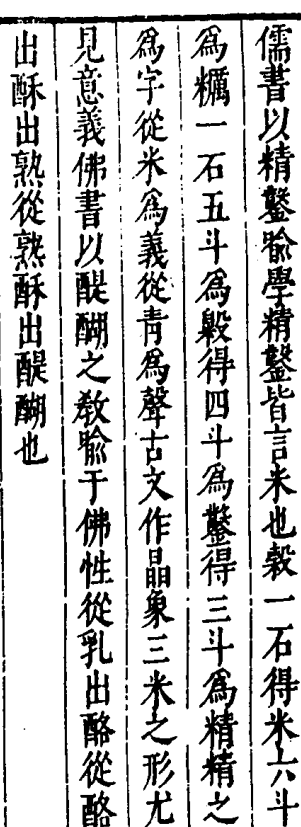 儒書以精鑿喻學精鑿皆言米也穀一石得米六斗
爲糲一石五斗爲毇得四斗爲鑿得三斗爲精精之
爲字從米爲義從青爲聲古文作晶象三米之形尤
見意義佛書以醍醐之教喻于佛性從乳出酪從酪
出酥出熟從熟酥出醍醐也